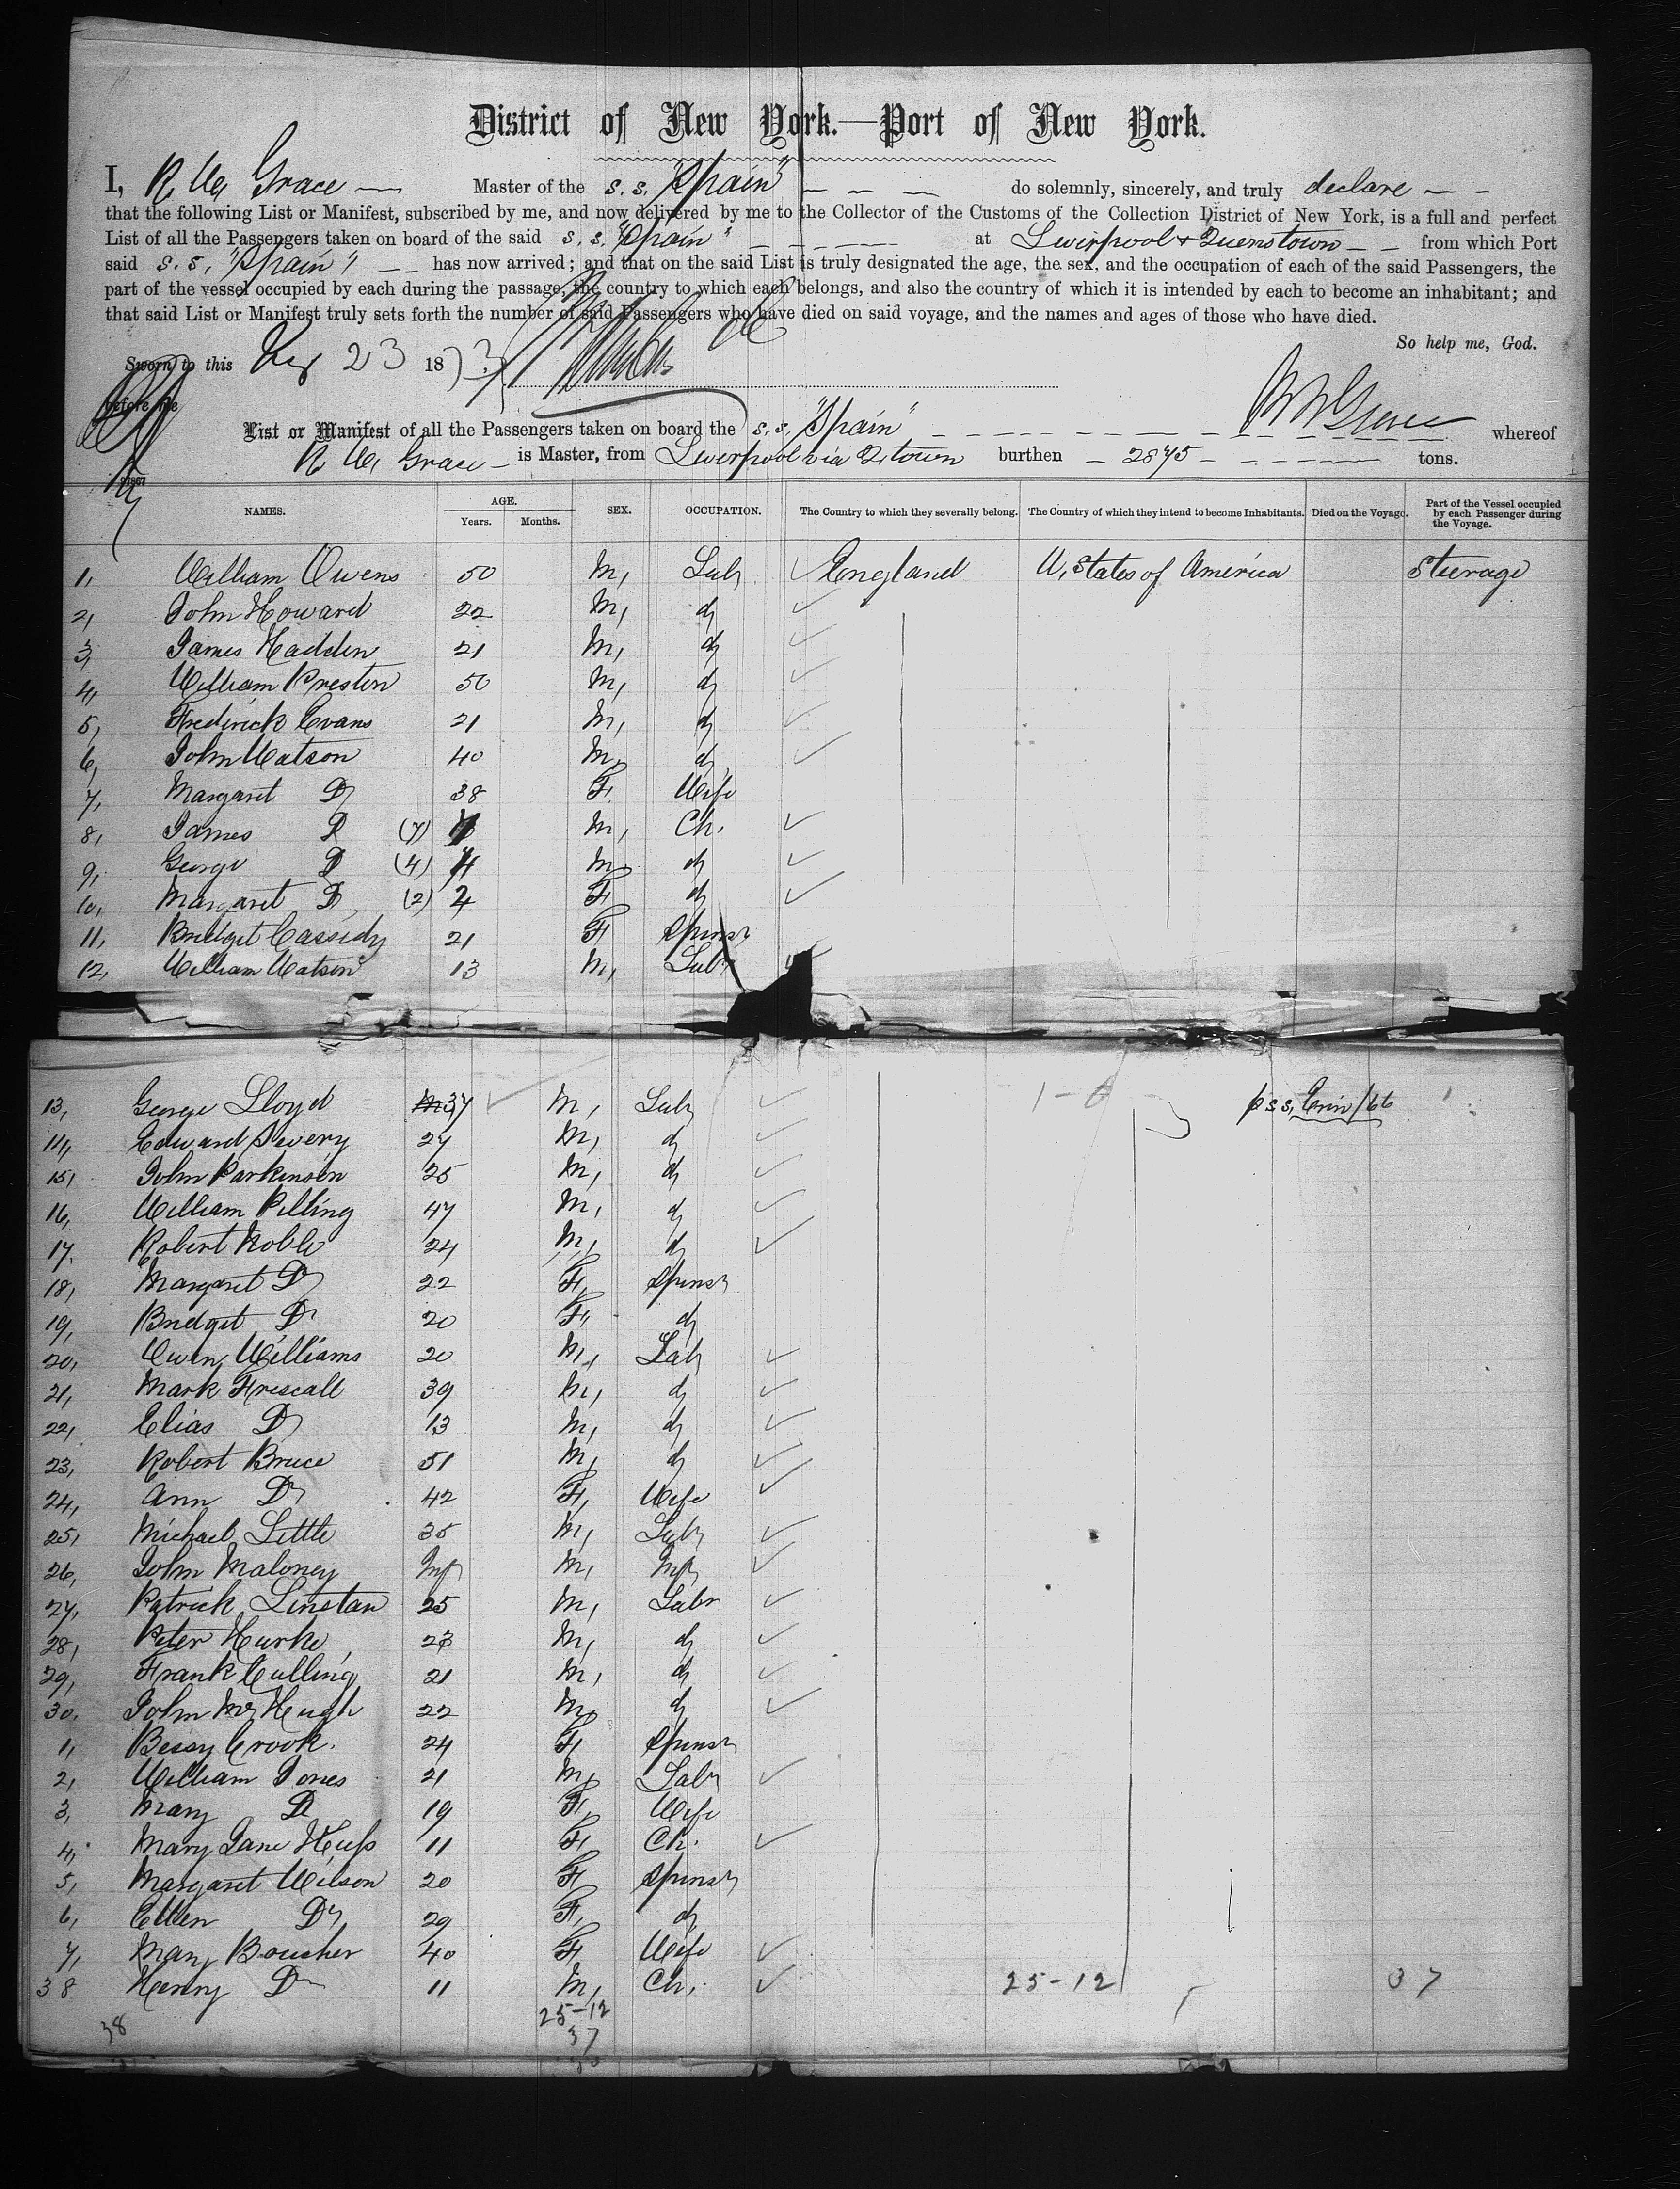 District of New York.—Port of New York.
I, R W Grace — Master of the s.s. "Spain" — — — do solemnly, sincerely, and truly declare — —
that the following List or Manifest, subscribed by me, and now delivered by me to the Collector of the Customs of the Collection District of New York, is a full and perfect
List of all the Passengers taken on board of the said s.s. "Spain" — — — at Liverpool & Queenstown — — from which Port
said s.s. "Spain" — — has now arrived; and that on the said List is truly designated the age, the sex, and the occupation of each of the said Passengers, the
part of the vessel occupied by each during the passage, the country to which each belongs, and also the country of which it is intended by each to become an inhabitant; and
that said List or Manifest truly sets forth the number of said Passengers who have died on said voyage, and the names and ages of those who have died.
So help me, God.
Sworn to this 23 1873
before me
List or Manifest of all the Passengers taken on board the s.s. "Spain" whereof
R W Grace — is Master, from Liverpool via Qtown burthen — 2875 — tons.
NAMES. AGE. Years. Months. SEX. OCCUPATION. The Country to which they severally belong. The Country of which they intend to become Inhabitants. Died on the Voyage. Part of the Vessel occupied by each Passenger during the Voyage.
1, William Owens 50 M, Labr England U, States of America Steerage
2, John Howard 22 M, do
3, James Hadden 21 M, do
4, William Preston 50 M, do
5, Frederick Evans 21 M, do
6, John Watson 40 M, do
7, Margaret Do 38 F. Wife
8, James Do (7) 7 M, Ch.
9, George Do (4) 4 M, do
10, Margaret Do (2) 2 F, do
11, Bridget Cassidy 21 F Spinsr
12, William Watson 13 M, Labr
13, George Lloyd 37 M, Labr 1-0 p s.s. Erin/66
14, Edward 27 M, do
15, John Parkinson 25 M, do
16, William Pilling 47 M, do
17. Robert Noble 24 M, do
18, Margaret Do 22 F, Spinsr
19, Bridget Do 20 F, do
20, Owen Williams 20 M, Labr
21, Mark Friscall 39 M, do
22, Elias Do 13 M, do
23, Robert Bruce 51 M, do
24, Ann Do 42 F, Wife
25, Michael Little 35 M, Labr
26, John Maloney Inft M, Inft
27, Patrick Linstan 25 M, Labr
28, Peter Hurke 23 M, do
29, Frank Culling 21 M, do
30. John McHugh 22 M, do
1, Bessy Crook. 24 F, Spinsr
2, William Jones 21 M, Labr
3, Mary Do 19 F, Wife
4, Mary Jane 11 F, Ch.
5, Margaret Wilson 20 F, Spinsr
6, Ellen Do 29 F, do
7, Mary Boucher 40 F, Wife
38 Henry Do 11 M, Ch. 25-12 37
25-12
38 37